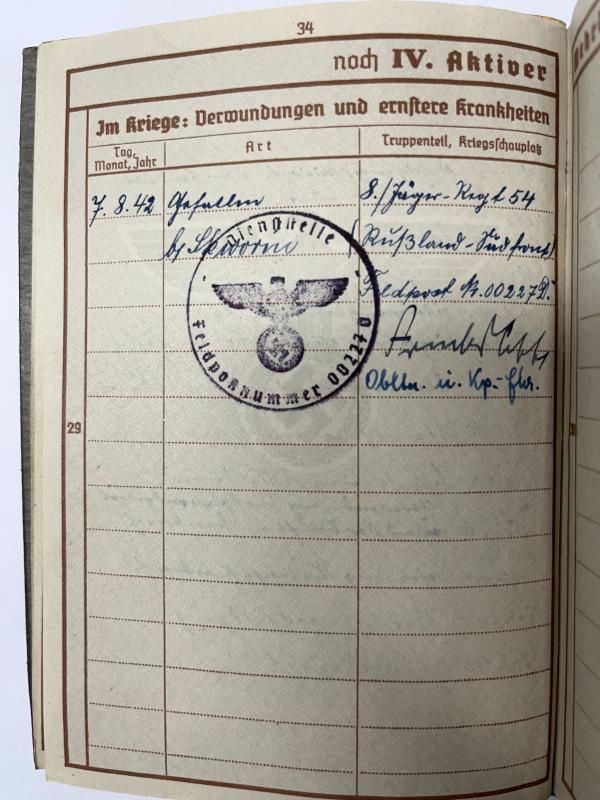 34
noch IV. Aktiver
Im Kriege: Verwundungen und ernstere Krankheiten
Tag, Monat, Jahr
Art
Truppenteil, Kriegsschauplatz
7. 8. 42 Gefallen 8./Jäger-Regt 54
b/ Skworin (Rußland-Südfront)
Feldpost Nr. 00227 D.
Obltn. u. Kp.-Fhr.
Dienststelle
Feldpostnummer 00227 D
29